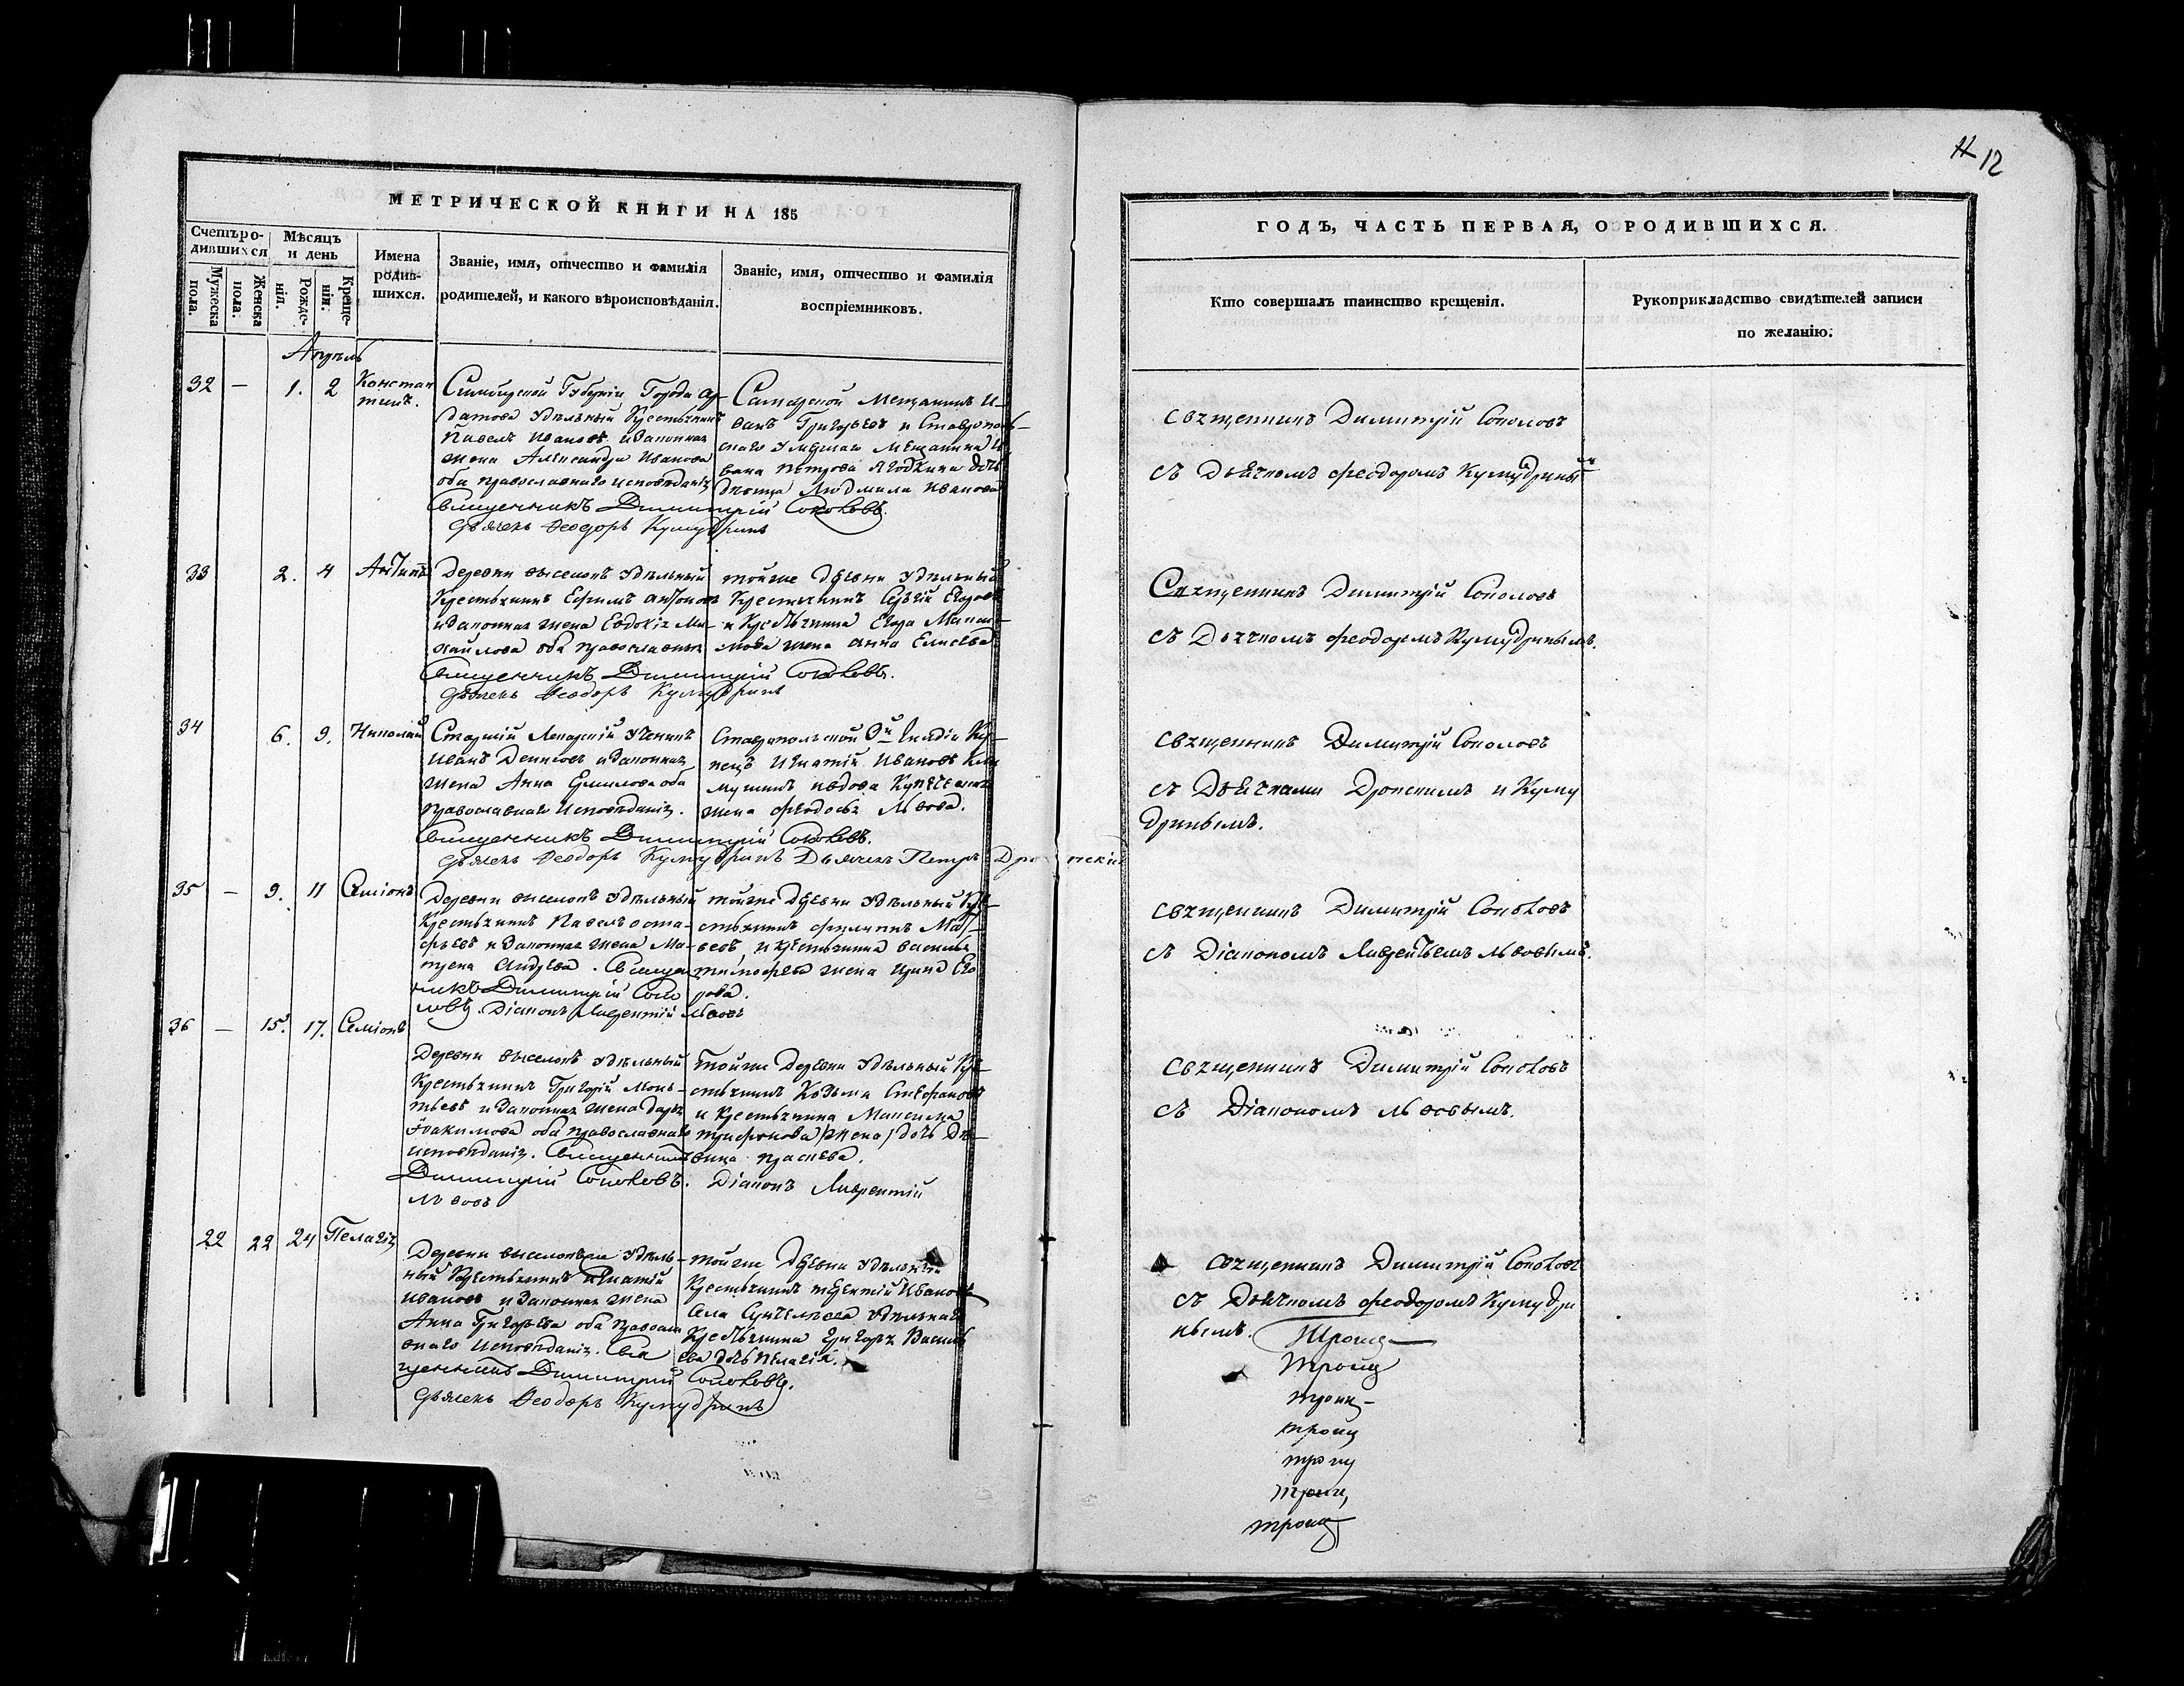 12
МЕТРИЧЕСКОЙ КНИГИ НА 185
Счетъ ро-
дившихся
Мужеска пола.
Женска пола.
Мѣсяцъ
и день
Рожде-
нія.
Креще-
нія.
Имена
родив-
шихся.
Званіе, имя, отчество и фамилія
родителей, и какого вѣроисповѣданія.
Званіе, имя, отчество и фамилія
воспріемниковъ.
Апрѣль
32 — 1. 2 Констан
тинъ.
Симбирской Губерніи Города Ар-
датова Удѣльный Крестьянинъ
Павелъ Ивановъ и законная
жена Александра Иванова
оба православнаго исповѣданія
Священникъ Димитрій Соколовъ.
Дьячекъ Феодоръ Кумудринъ
Самарской Мещанинъ И-
ванъ Григорьевъ и Ставрополь-
скаго умершаго Мещанина И
вана Петрова Ягодкина дочь
Людмила Иванова
33 2. 4 Антипъ
Деревни выселокъ удѣльный
Крестьянинъ Ефимъ Антонов
и законная жена Евдокія Ми-
хайлова оба православныя
Священникъ Димитрій Соколовъ.
Дьячекъ Феодоръ Кумудринъ
тойже Деревни Удѣльный
Крестьянинъ Сергій Егоровъ
и Крестьянина Егора Макси-
мова жена Анна Елисѣева
34 6. 9. Николай
Старшій Лекарскій Ученикъ
Иванъ Денисовъ и законная
жена Анна Ермилова оба
православнаго Исповѣданія.
Священникъ Димитрій Соколовъ.
Дьячекъ Феодоръ Кумудринъ Дьячекъ Петръ
Ставропольской 3й Гилдіи Ку-
пецъ Игнатій Ивановъ
жена Феодосья Львова.
35 — 9. 11 Симіонъ
Деревни выселокъ Удѣльный
Крестьянинъ Павелъ Оста-
фьевъ и законная жена Ма-
трена Андреева. Священ
никъ Димитрій Соко
ловъ. Діаконъ Лаврентій Львовъ
тойже Деревни Удѣльный Кре-
стьянинъ Филипъ Мат-
веевъ, и крестьянина Василья
Тимофеева жена Ирина Его
рова.
36 — 15. 17. Семіонъ
Деревни выселокъ удѣльный
Крестьянинъ Григорій
и законная жена Дарья
Иоакимова оба православнаго
исповѣданія. Священникъ
Димитрій Соколовъ. Діаконъ Лаврентій
Львовъ
тойже Деревни Удѣльный Кре-
стьянинъ Козьма Стефановъ
и Крестьянина Максима
Трифонова (жена) дочь Дѣ-
вица
22 22 24 Пелагія
Деревни выселокъ Удѣль-
ный Крестьянинъ Игнатій
Ивановъ и Законная жена
Анна Григорьева оба правосла
внаго исповѣданія. Свя
щенникъ Димитрій Соколовъ.
Дьячекъ Феодоръ Кумудринъ
тойже Деревни Удѣльный
Крестьянинъ Терентій Ивановъ
Села удѣльнаго
Крестьянина Григорья Василь
ева дочь Пелагія.
ГОДЪ, ЧАСТЬ ПЕРВАЯ, О РОДИВШИХСЯ.
Кто совершалъ таинство крещенія.
Рукоприкладство свидѣтелей записи
по желанію.
Священникъ Димитрій Соколовъ
съ Дьячкомъ Феодоромъ Кумудринымъ
Священникъ Димитрій Соколовъ
съ Дьячкомъ Феодоромъ Кумудринымъ.
Священникъ Димитрій Соколовъ
съ Дьячками и Куму
дринымъ.
Священникъ Димитрій Соколовъ
съ Діакономъ Лаврентьемъ Львовымъ.
Священникъ Димитрій Соколовъ
съ Діакономъ Львовымъ.
Священникъ Димитрій Соколовъ
съ Дьячкомъ Феодоромъ Кумудри
нымъ.